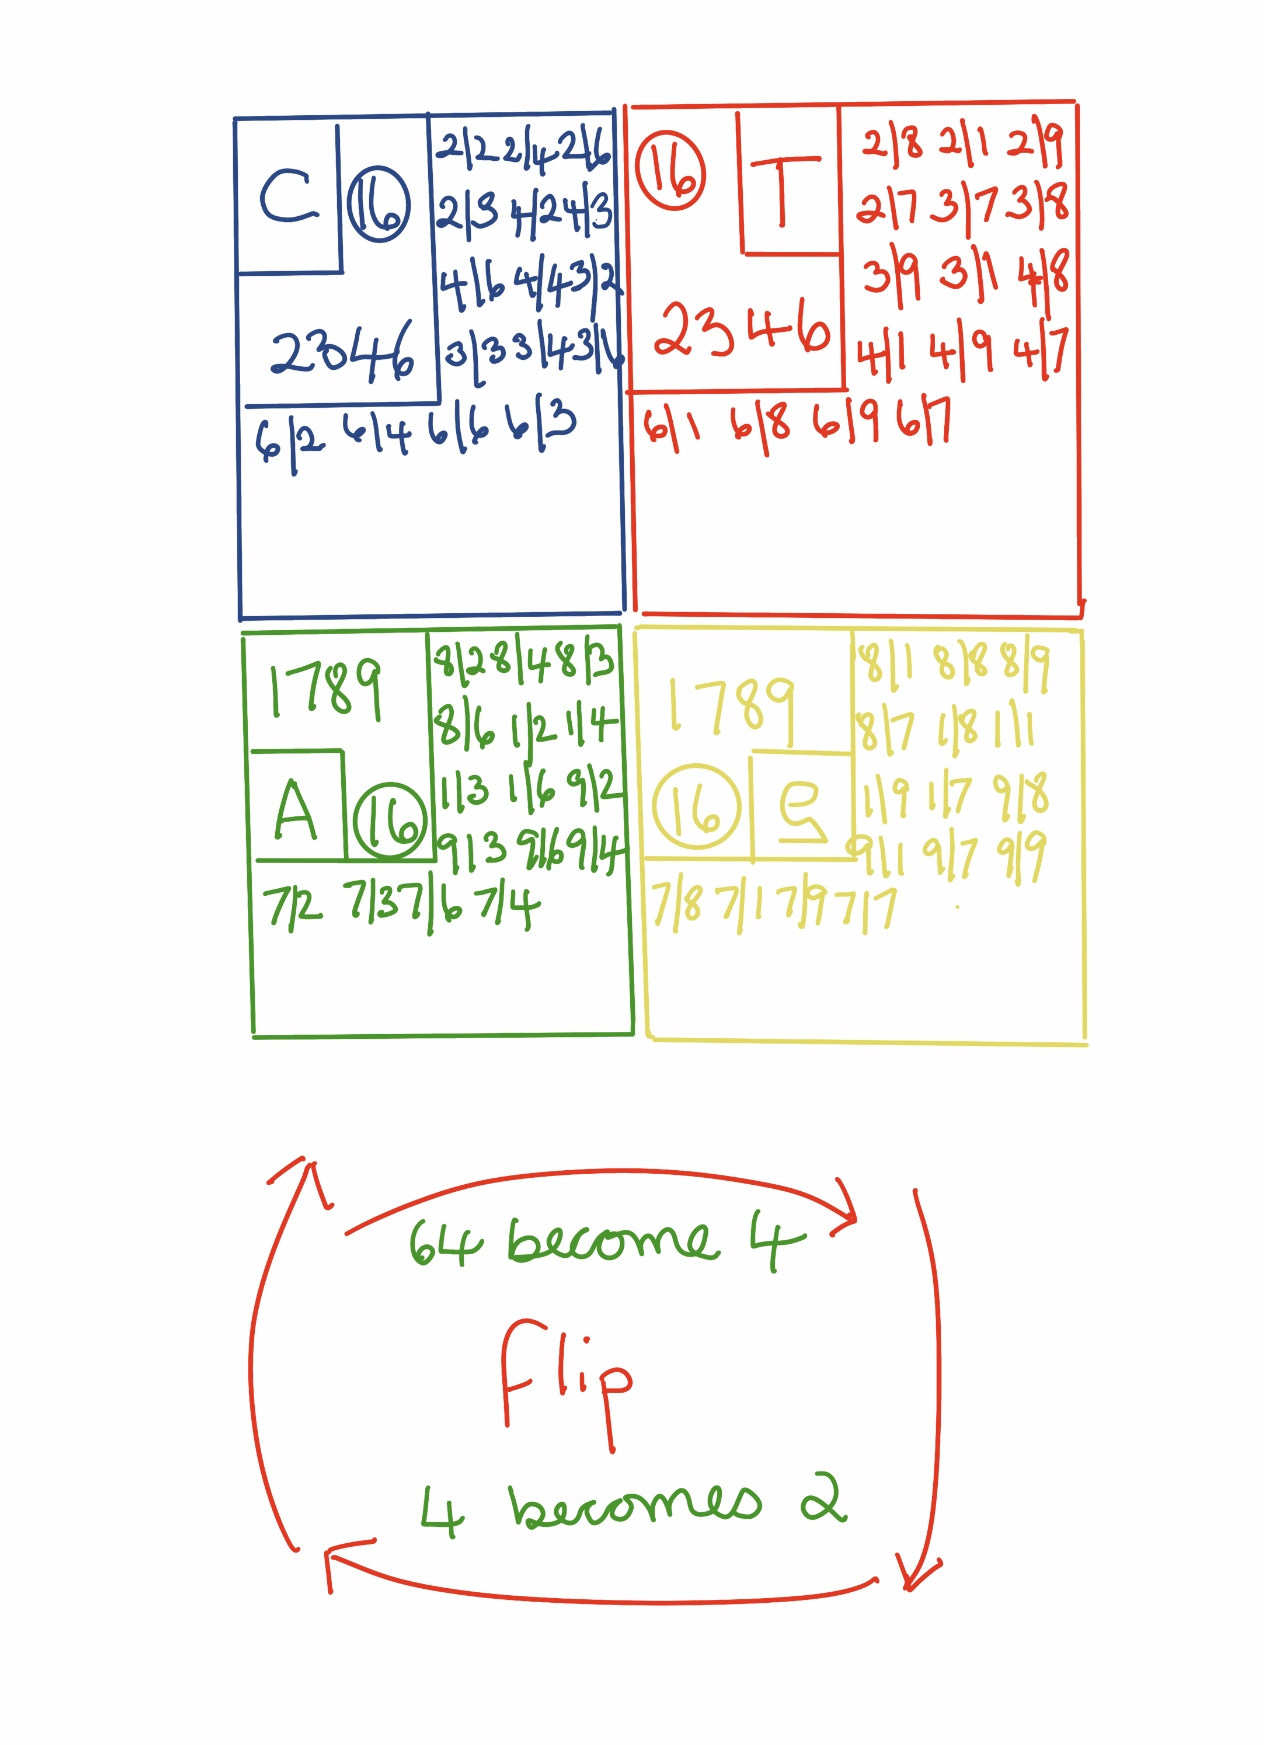 C 16
2346
2|2 2|4 2|6
2|3 4|2 4|3
4|6 4|4 3|2
3|3 3|4 3|6
6|2 6|4 6|6 6|3
16 T
2346
2|8 2|1 2|9
2|7 3|7 3|8
3|9 3|1 4|8
4|1 4|9 4|7
6|1 6|8 6|9 6|7
1789
A 16
8|2 8|4 8|3
8|6 1|2 1|4
1|3 1|6 9|2
9|3 9|6 9|4
7|2 7|3 7|6 7|4
1789
16
8|1 8|8 8|9
8|7 1|8 1|1
1|9 1|7 9|8
9|1 9|7 9|9
7|8 7|1 7|9 7|7
64 become 4
flip
4 becomes 2